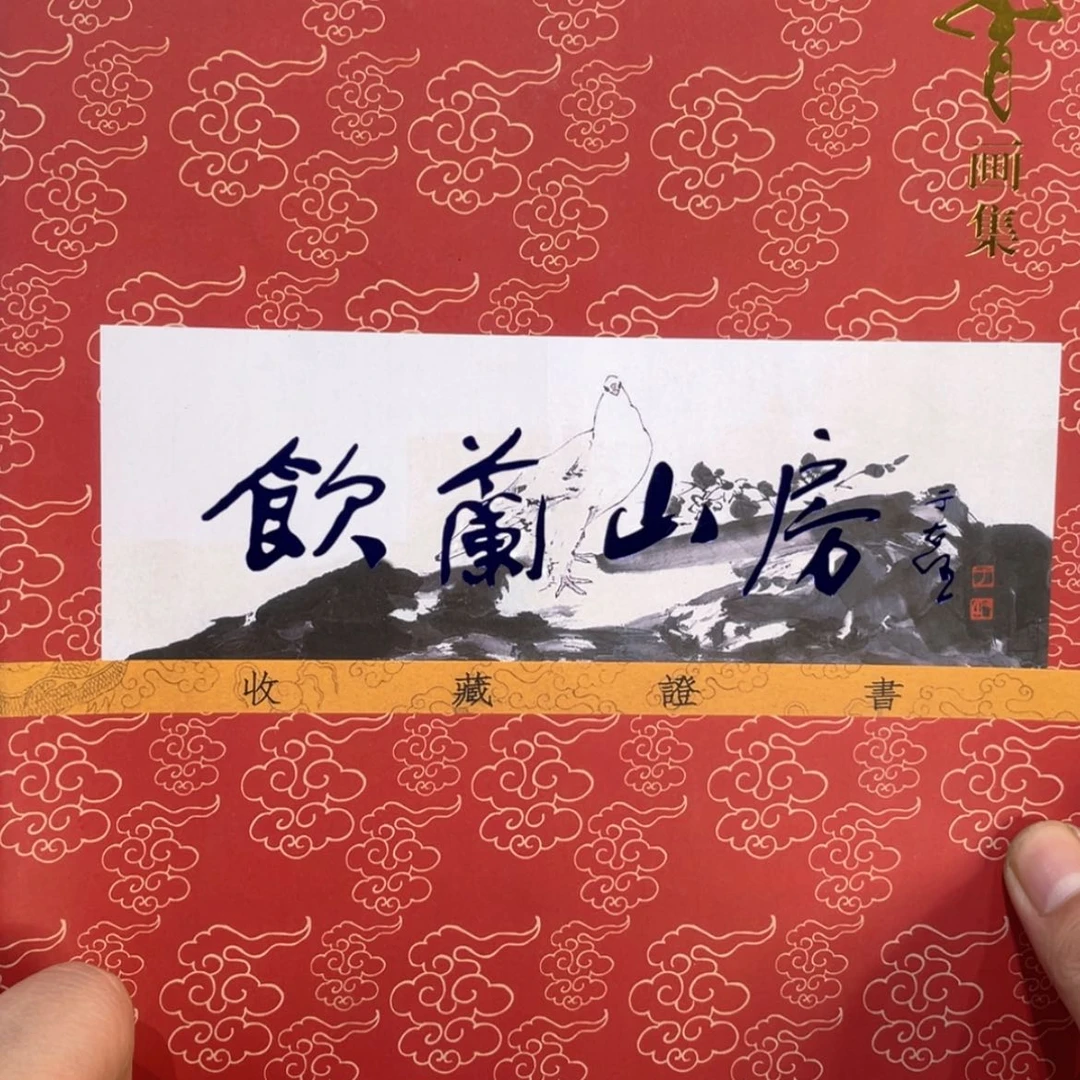 画集
飲蘭山房
收藏證書